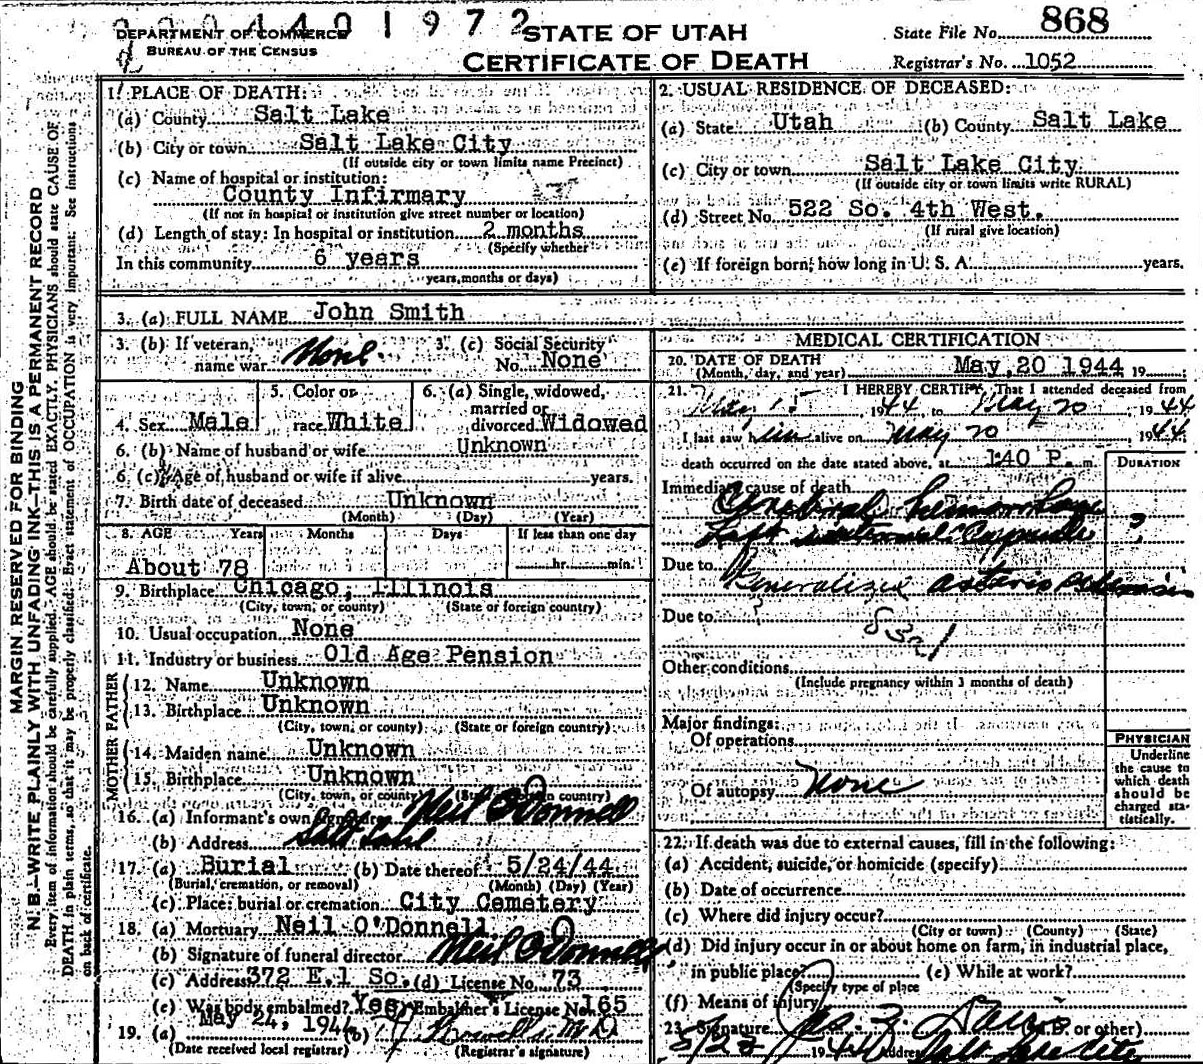 2 2 0 4 4 0 1 9 7 2
DEPARTMENT OF COMMERCE
BUREAU OF THE CENSUS
STATE OF UTAH
CERTIFICATE OF DEATH
State File No. 868
Registrar's No. 1052
MARGIN RESERVED FOR BINDING
N. B.—WRITE PLAINLY WITH UNFADING INK—THIS IS A PERMANENT RECORD
Every item of information should be carefully supplied. AGE should be stated EXACTLY. PHYSICIANS should state CAUSE OF
DEATH in plain terms, so that it may be properly classified. Exact statement of OCCUPATION is very important. See instructions
on back of certificate.
1. PLACE OF DEATH:
(a) County Salt Lake
(b) City or town Salt Lake City
(If outside city or town limits name Precinct)
(c) Name of hospital or institution:
County Infirmary
(If not in hospital or institution give street number or location)
(d) Length of stay: In hospital or institution 2 months
(Specify whether
In this community 6 years
years, months or days)
2. USUAL RESIDENCE OF DECEASED:
(a) State Utah (b) County Salt Lake
(c) City or town Salt Lake City
(If outside city or town limits write RURAL)
(d) Street No. 522 So. 4th West.
(If rural give location)
(e) If foreign born, how long in U. S. A. years.
3. (a) FULL NAME John Smith
3. (b) If veteran, name war None.
3. (c) Social Security No. None
4. Sex Male
5. Color or race White
6. (a) Single, widowed, married or divorced Widowed
6. (b) Name of husband or wife Unknown
6. (c) Age of husband or wife if alive years.
7. Birth date of deceased Unknown
(Month) (Day) (Year)
8. AGE Years Months Days If less than one day
About 78 hr. min.
9. Birthplace Chicago, Illinois
(City, town, or county) (State or foreign country)
10. Usual occupation None
11. Industry or business Old Age Pension
FATHER
12. Name Unknown
13. Birthplace Unknown
(City, town, or county) (State or foreign country)
MOTHER
14. Maiden name Unknown
15. Birthplace Unknown
(City, town, or county) (State or foreign country)
16. (a) Informant's own signature Neil O'Donnell
(b) Address Salt Lake
17. (a) Burial (b) Date thereof 5/24/44
(Burial, cremation, or removal) (Month) (Day) (Year)
(c) Place: burial or cremation City Cemetery
18. (a) Mortuary Neil O'Donnell
(b) Signature of funeral director Neil O'Donnell
(c) Address 372 E. 1 So. (d) License No. 73
(e) Was body embalmed? Yes Embalmer's License No. 165
19. (a) May 24, 1944 (b)
(Date received local registrar) (Registrar's signature)
MEDICAL CERTIFICATION
20. DATE OF DEATH May 20 1944 19
(Month, day, and year)
21. I HEREBY CERTIFY, That I attended deceased from
May 15 1944 to May 20, 1944
I last saw him alive on May 20, 1944
death occurred on the date stated above, at 1:40 P. m.
DURATION
Immediate cause of death
Cerebral hemorrhage
Left internal Capsule ?
Due to Generalized arterio sclerosis
Due to ?
832/
Other conditions
(Include pregnancy within 3 months of death)
Major findings:
Of operations
Of autopsy None
PHYSICIAN
Underline
the cause to
which death
should be
charged sta-
tistically.
22. If death was due to external causes, fill in the following:
(a) Accident, suicide, or homicide (specify)
(b) Date of occurrence
(c) Where did injury occur?
(City or town) (County) (State)
(d) Did injury occur in or about home on farm, in industrial place,
in public place? (e) While at work?
(Specify type of place
(f) Means of injury
23. Signature (M.D. or other)
1944 Address Salt Lake City